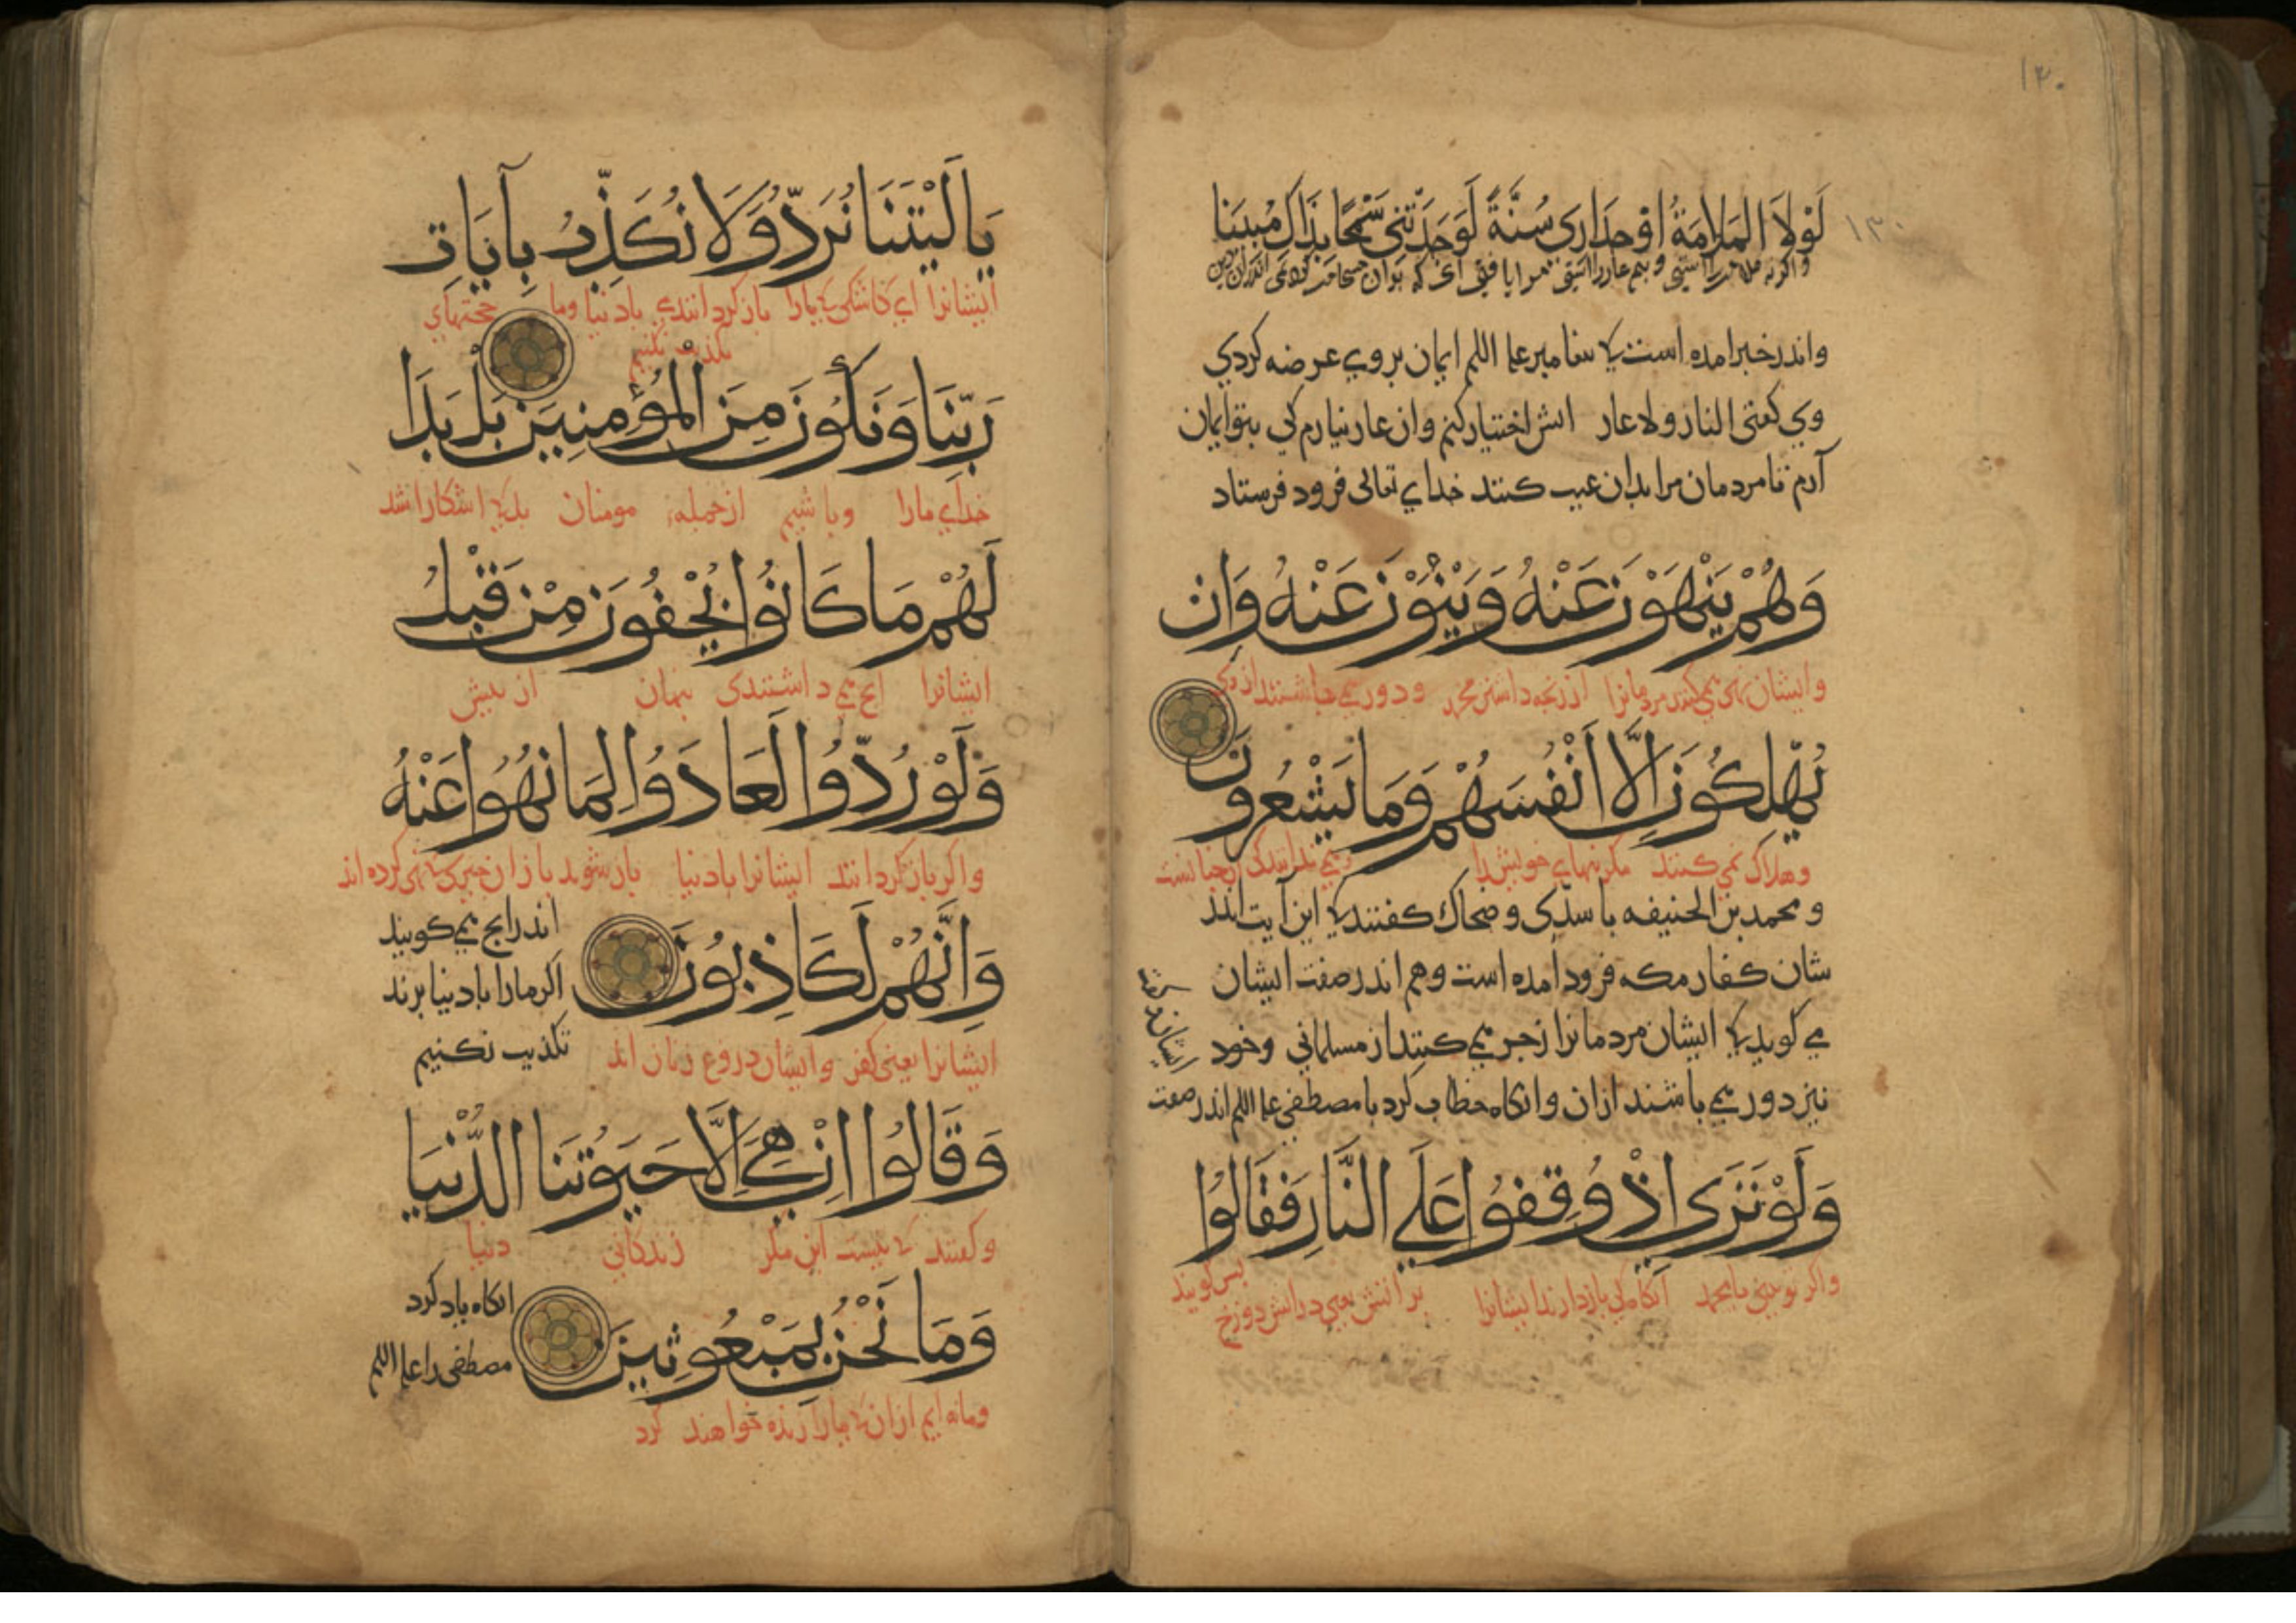 ۱۳۰
لَوْلَا الْمَلَامَةُ اَوْ حِذَارِي سُنَّةً لَوَجَدْتَنِي سَمْحًا بِذَاكَ مُبِينَا
۱۳۰
واندر خبر امده است کی ایمان بروي عرضه کردي
وي کفتی النار ولا عار اتش اختیار کنم وان عار نیارم کی بتو ایمان
آرم تا مردمان مرا بدان عیب کنند خداي تعالی فرود فرستاد
وَهُمْ يَنْهَوْنَ عَنْهُ وَيَنْئَوْنَ عَنْهُ وَاِنْ
وایشان نهی می کنند مردمانرا از محمد ودور می باشند از وی
يُهْلِكُونَ اِلَّا اَنْفُسَهُمْ وَمَا يَشْعُرُونَ
وهلاک نمی کنند مکر تنهاي خویش را ونمی دانند کی چنانست
ومحمد بن الحنیفه با سدّی وضحاک کفتند کی این آیت اندر
شان کفار مکه فرود امده است وهم اندر صفت ایشان
می کوید کی ایشان مردمانرا زجر می کنند از مسلمانی وخود
نیز دور می باشند ازان وانکاه خطاب کرد با مصطفی اندر صفت
وَلَوْ تَرَى اِذْ وُقِفُوا عَلَي النَّارِ فَقَالُوا
واکر تو بینی یا محمد آنکاه کی بازدارند ایشانرا بر اتش یعنی در اتش دوزخ پس کویند
يَا لَيْتَنَا نُرَدُّ وَلَا نُكَذِّبُ بِآيَاتِ
ایشانرا اي کاشکی کی ما را باز کردانندی بادنیا وما تکذیب نکنیم حجتهاي
رَبِّنَا وَنَكُونَ مِنَ الْمُؤْمِنِينَ بَلْ بَدَا
خداي ما را وباشیم از جمله مومنان بل کی اشکارا شد
لَهُمْ مَا كَانُوا يُخْفُونَ مِنْ قَبْلُ
ایشانرا انچ می داشتندی پنهان از پیش
وَلَوْ رُدُّوا لَعَادُوا لِمَا نُهُوا عَنْهُ
واکر باز کردانند ایشانرا بادنیا باز شوند بازان چیز کی نهی کرده اند
وَاِنَّهُمْ لَكَاذِبُونَ
ایشانرا یعنی کفر وایشان دروغ زنان اند
اندرانچ می کویند
اکر ما را بادنیا برند
تکذیب نکنیم
وَقَالُوا اِنْ هِيَ اِلَّا حَيَوتُنَا الدُّنْيَا
وکفتند کی نیست این مکر زندکانی دنیا
وَمَا نَحْنُ بِمَبْعُوثِينَ
انکاه یاد کرد
مصطفی را
وما نه ایم ازان کی ما را زنده خواهند کرد